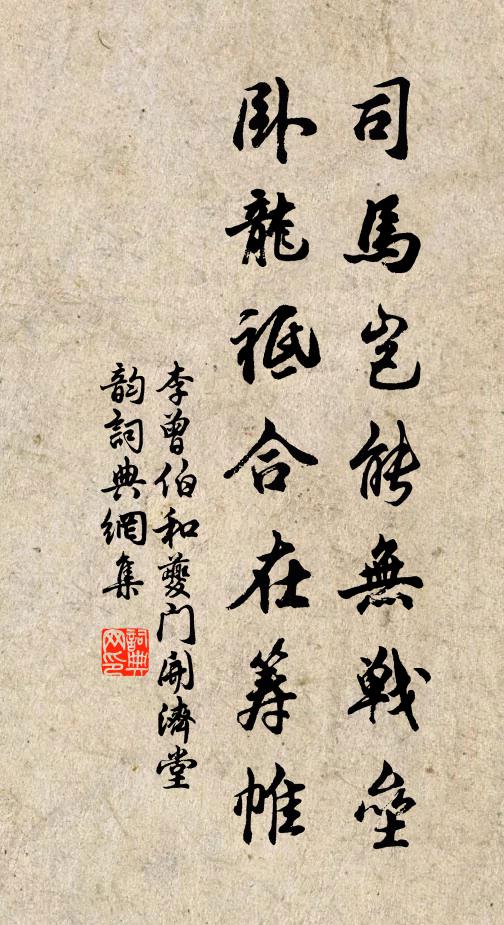 司馬豈能無戰壘
卧龍祗合在筹帷
李曾伯和夔门開濟堂
韵詞典網集
詞典网印